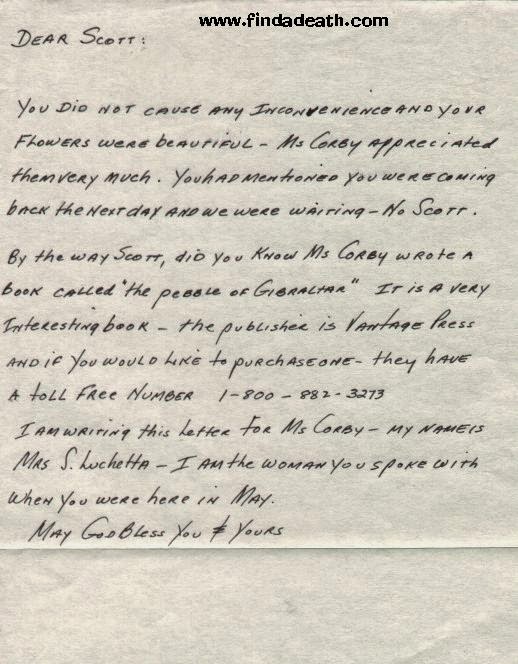 www.findadeath.com
Dear Scott:
You did not cause any inconvenience and your
flowers were beautiful - Ms Corby appreciated
them very much. You had mentioned you were coming
back the next day and we were waiting - No Scott.
By the way Scott, did you know Ms Corby wrote a
book called "the pebble of Gibraltar" It is a very
interesting book - the publisher is Vantage Press
and if you would like to purchase one - they have
a toll free number 1-800-882-3273
I am writing this letter for Ms Corby - my name is
Mrs S. Luchetta - I am the woman you spoke with
when you were here in May.
May God Bless You & Yours